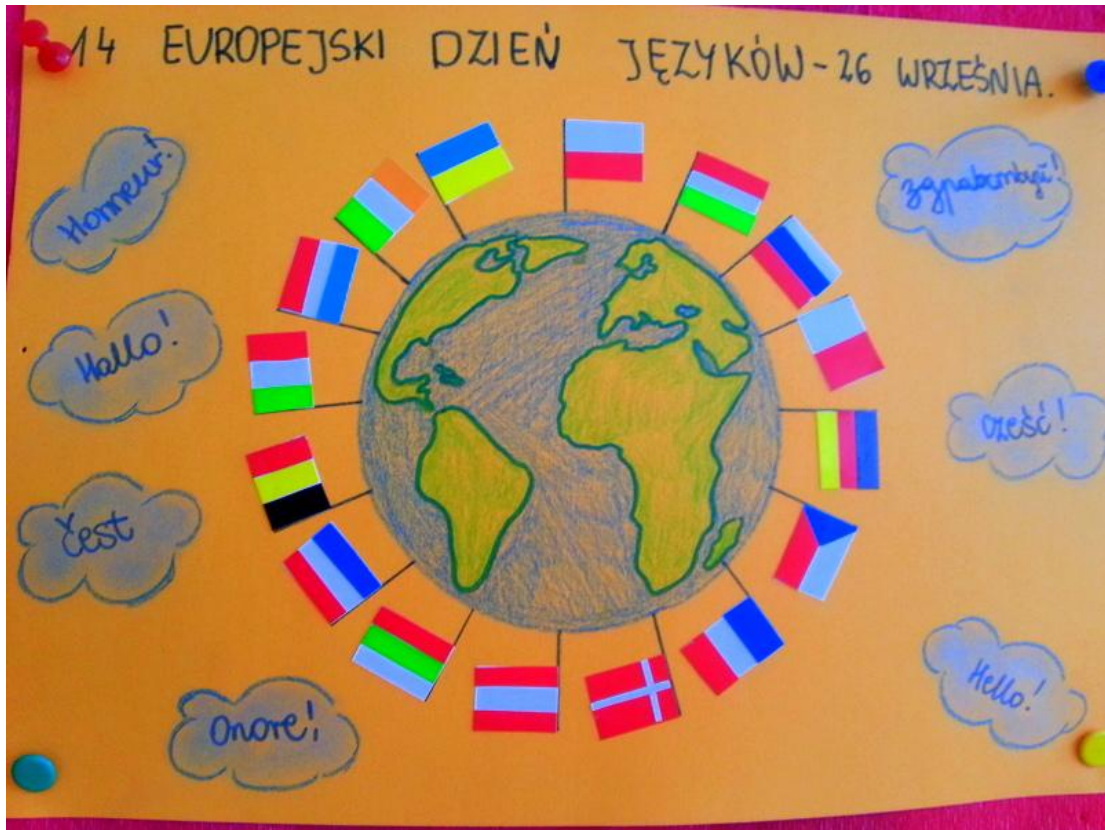 14 EUROPEJSKI DZIEŃ JĘZYKÓW - 26 WRZEŚNIA.
Honneur!
Hallo!
čest
Onore!
cześć!
Hello!